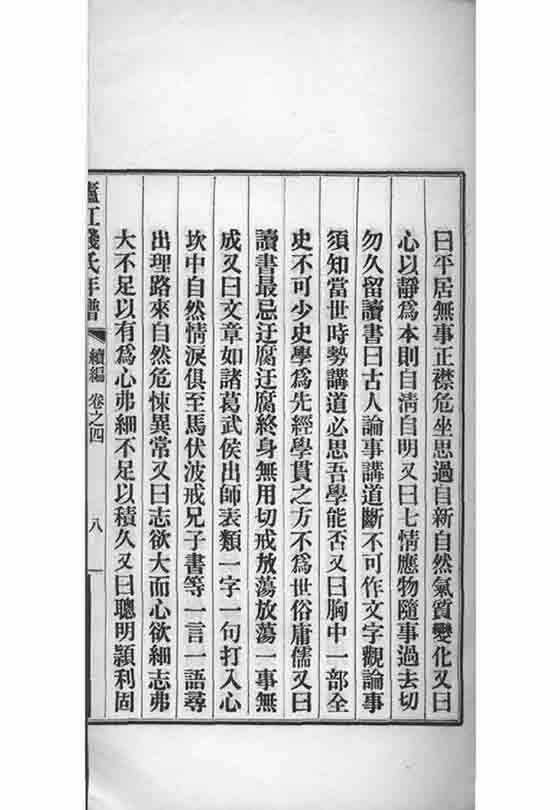 曰平居無事正襟危坐思過自新自然氣質變化又曰
心以靜爲本則自淸自明又曰七情應物隨事過去切
勿久留讀書曰古人論事講道斷不可作文字觀論事
須知當世時勢講道必思吾學能否又曰胸中一部全
史不可少史學爲先經學貫之方不爲世俗庸儒又曰
讀書最忌迂腐迂腐終身無用切戒放蕩放蕩一事無
成又曰文章如諸葛武侯出師表類一字一句打入心
坎中自然情淚俱至馬伏波戒兄子書等一言一語尋
出理路來自然危悚異常又曰志欲大而心欲細志弗
大不足以有爲心弗細不足以積久又曰聰明穎利固
廬江錢氏年譜 續編 卷之四 八